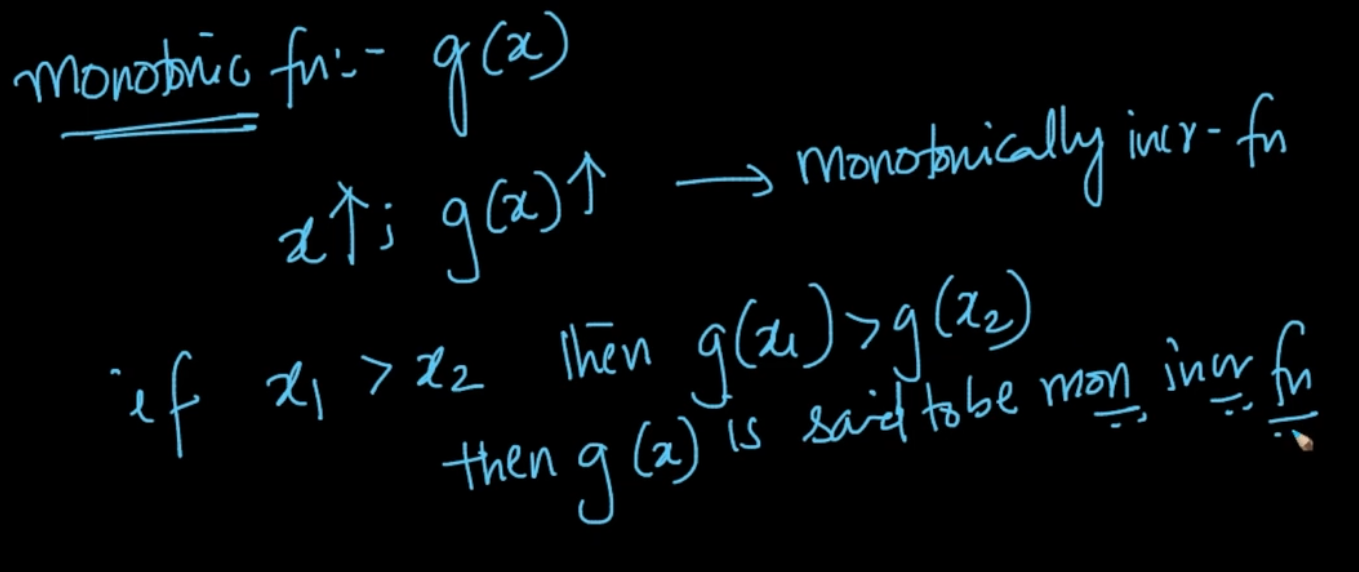 Monotonic fn:- g(x)
x↑; g(x)↑ → Monotonically incr- fn
if x₁ > x₂ then g(x₁) > g(x₂)
then g(x) is said to be mon incr fn